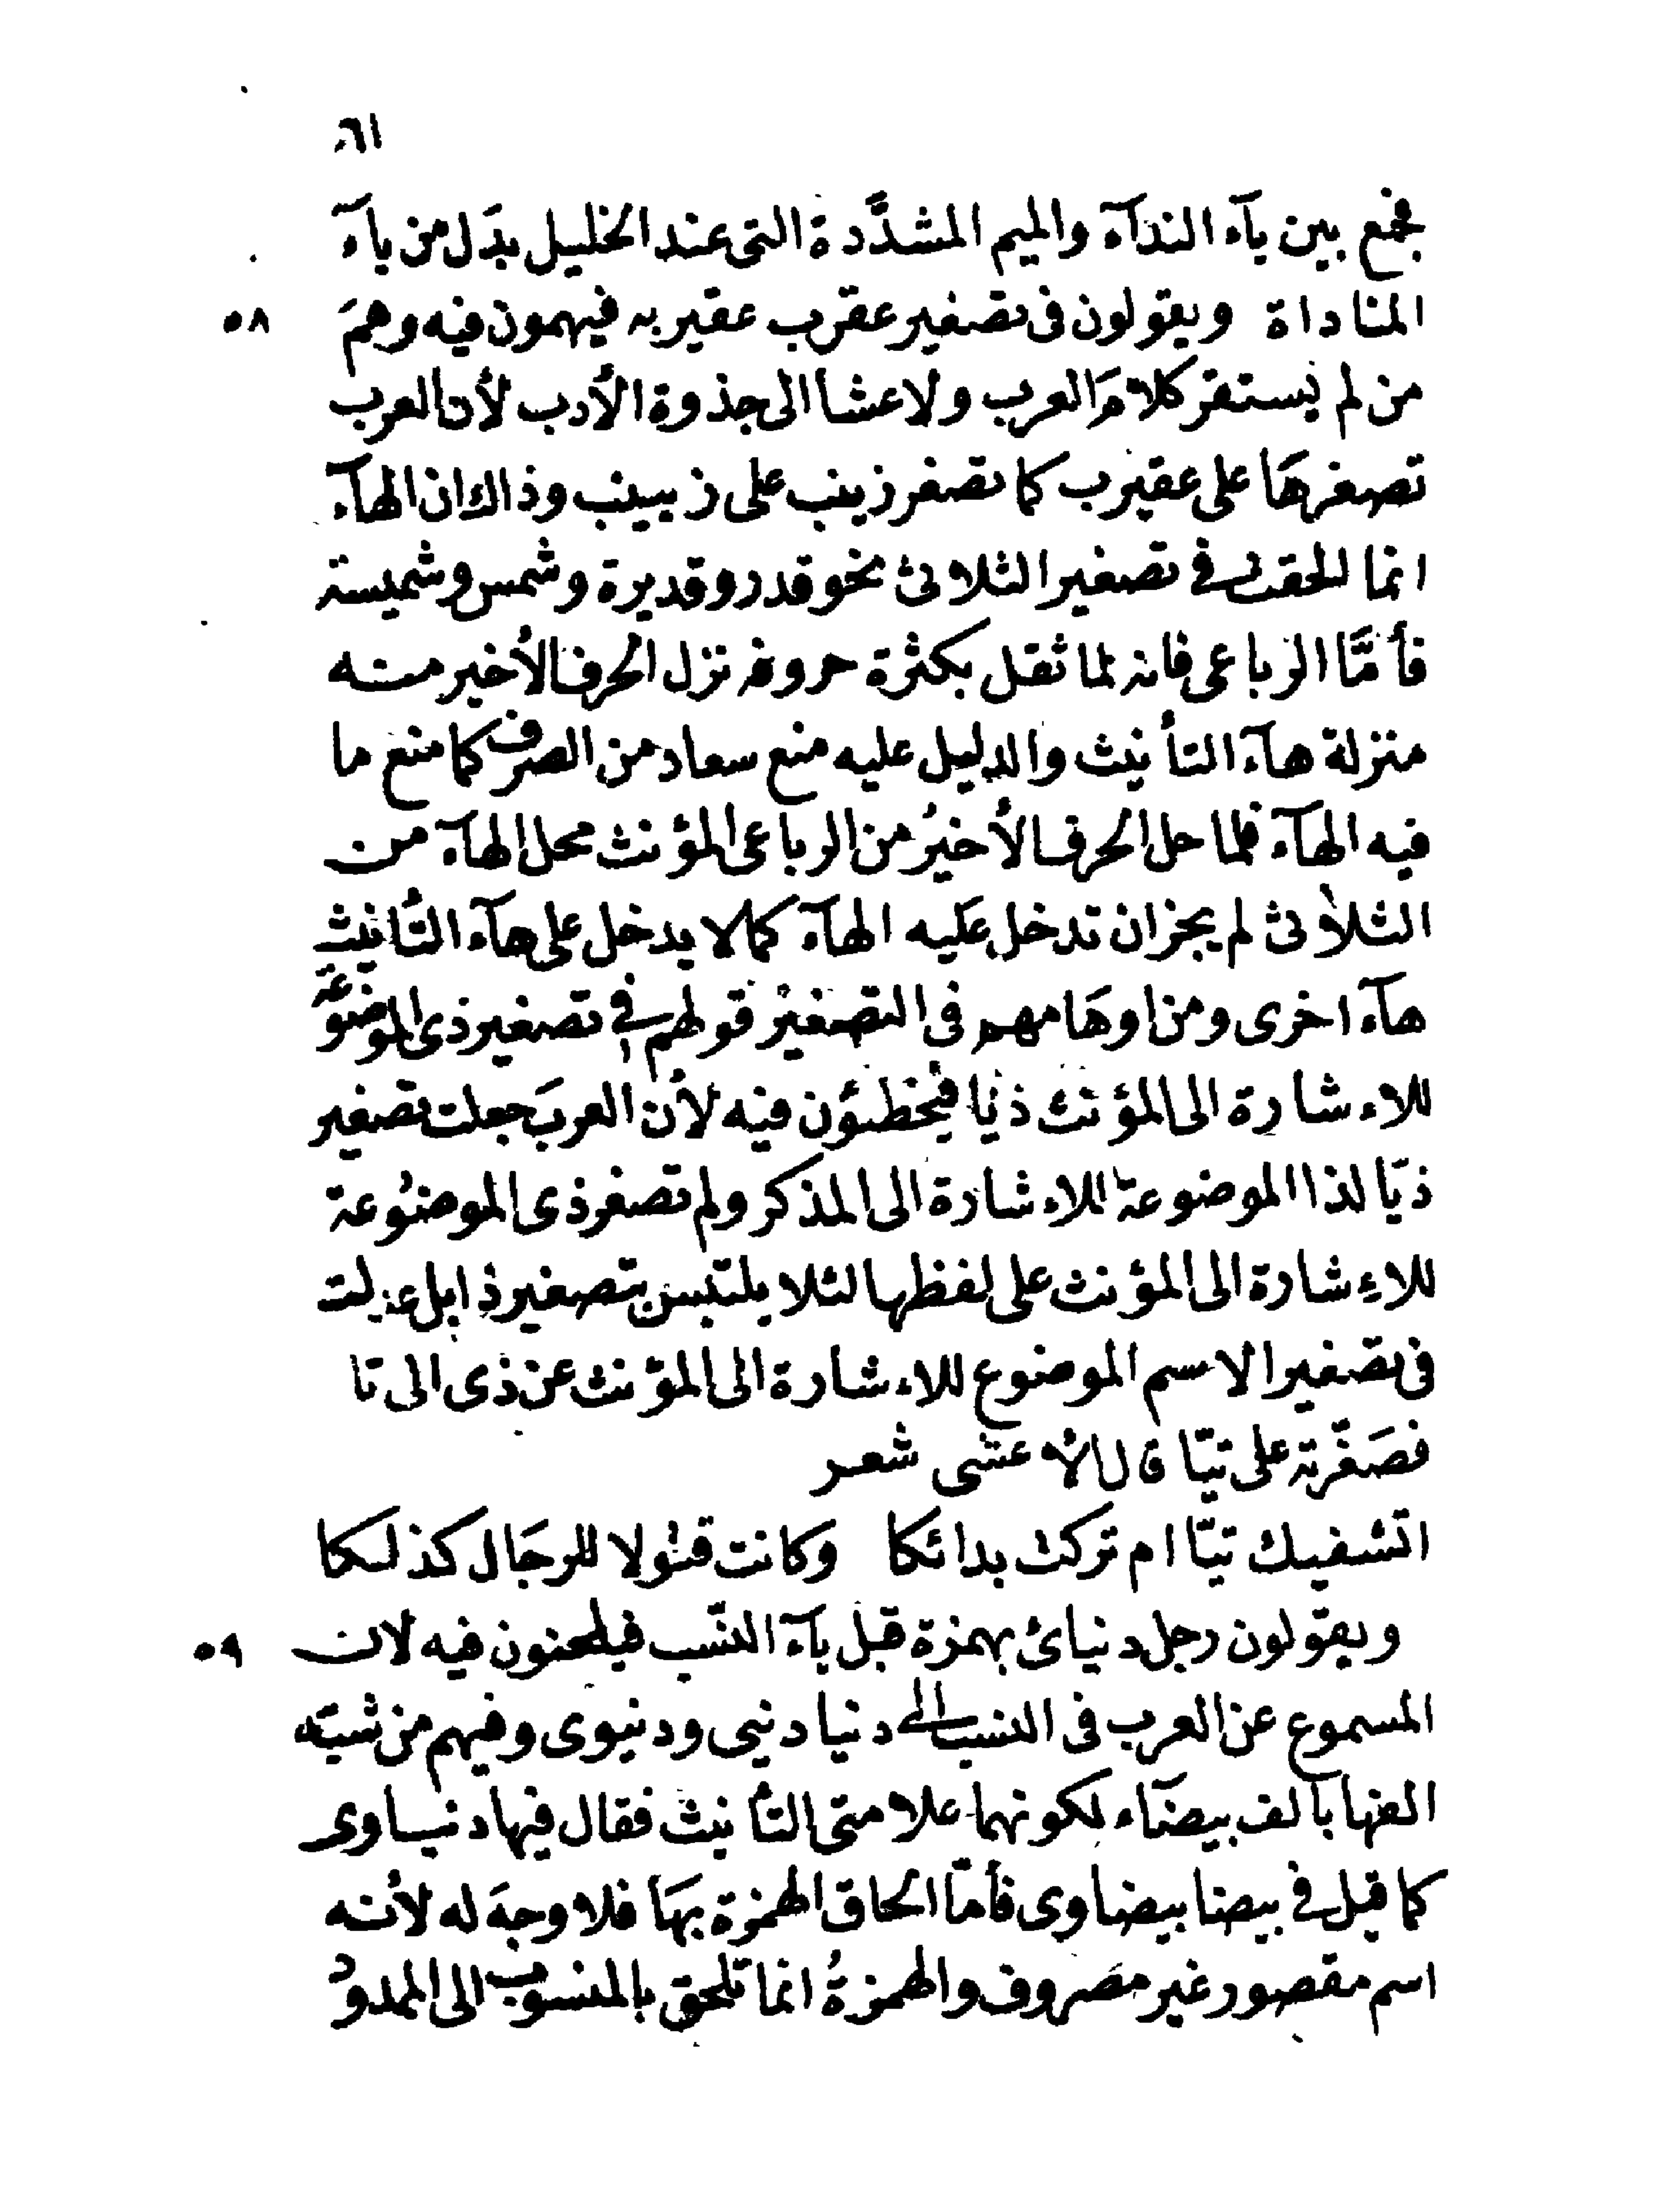 ٦١
فجمع بين يآء الندآء والميم المشدَّدة التى عند الخليل بدَل من يآء
المناداة ويقولون فى تصغير عقرب عقيربه فيهمون فيه وهمَ
٥٨
من لم يستقر كلامَ العرب ولا عشا الى جذوة الأدب لأن العرب
تصغرهَا على عقيرب كما تصغر زينب على زيينب وذاك ان الهآء
انما الحقت فى تصغير الثلاثى نحو قدر وقديرة وشمس وشميسة
فأمَّا الرباعى فانه لما ثقل بكثرة حروفه نزل الحرف الأخير منه
منزلة هآء التأنيث والدليل عليه منع سعاد من الصرف كما منع ما
فيه الهآء فلما حل الحرف الأخيرُ من الرباعى المؤنث محل الهآء من
الثلاثى لم يجز ان تدخل عَليه الهآء كما لا يدخل على هآء التأنيثِ
هآء اخرى ومن اوهَامهم فى التصغير قولهم فى تصغير ذى الموضوعَة
للاءشارة الى المؤنث ذيا فيخطئون فيه لأن العربَ جعلت تصغير
ذيّا لذا الموضوعة للاءشارة الى المذكر ولم تصغر ذى الموضوعة
للاءِشارة الى المؤنث على لفظها لئلا يلتبس بتصغير ذا بل عدلت
فى تصغير الاسم الموضوع للاءشارة الى المؤنث عن ذى الى تا
فصَغّرته على تيّا قال الأعشى شعر
اتشفيك تيّا ام تركت بدائكا وكانت قتولا للرجَال كذلكا
ويقولون رجل دنيائ بهمزة قبل يآء النسَب فيلحنون فيه لان
٥٩
المسموع عن العرب فى النسب الى دنيا دنيى ودنيوى وفيهم من شبّه
الفها بألف بيضَآء لكونهما علامتى التأنيث فقال فيها دنياوى
كما قيل فى بيضا بيضاوى فأمّا الحاق الهمزة بهَا فلا وجهَ له لأنه
اسم مقصور غير مصروف والهمزةُ انما تلحق بالمنسوب الى الممدودُ